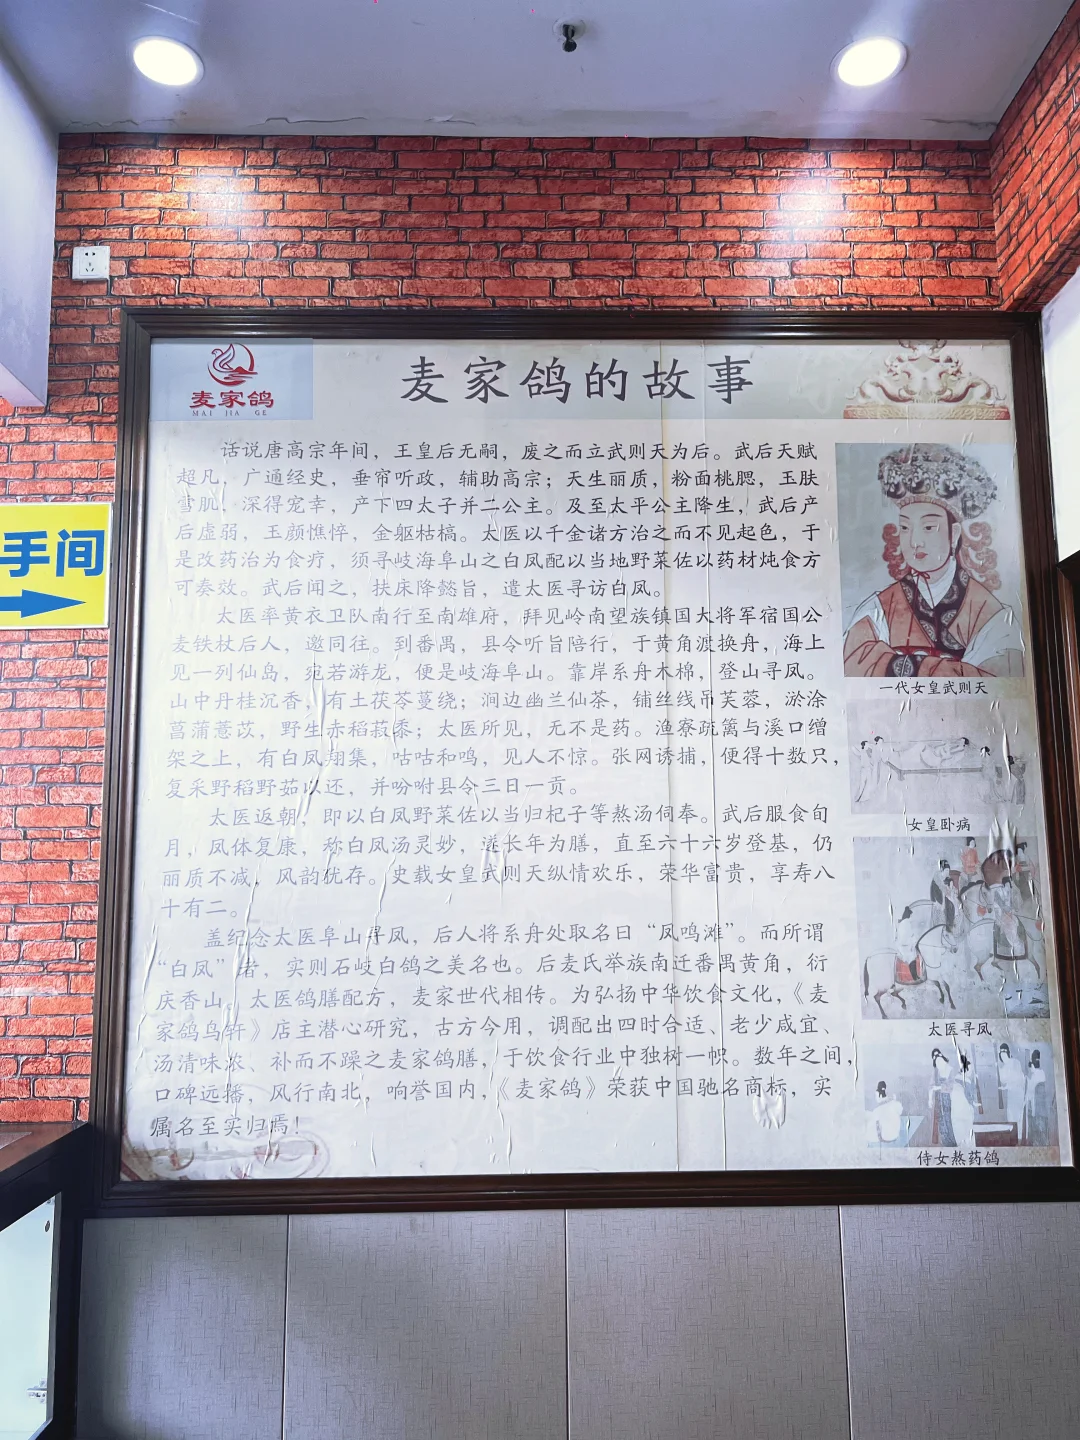 麦家鸽
MAI JIA GE
麦家鸽的故事
话说唐高宗年间，王皇后无嗣，废之而立武则天为后。武后天赋
超凡，广通经史，垂帘听政，辅助高宗；天生丽质，粉面桃腮，玉肤
雪肌，深得宠幸，产下四太子并二公主。及至太平公主降生，武后产
后虚弱，玉颜憔悴，金躯枯槁。太医以千金诸方治之而不见起色，于
是改药治为食疗，须寻岐海阜山之白凤配以当地野菜佐以药材炖食方
可奏效。武后闻之，扶床降懿旨，遣太医寻访白凤。
太医率黄衣卫队南行至南雄府，拜见岭南望族镇国大将军宿国公
麦铁杖后人，邀同往。到番禺，县令听旨陪行，于黄角渡换舟，海上
见一列仙岛，宛若游龙，便是岐海阜山。靠岸系舟木棉，登山寻凤。
山中丹桂沉香，有土茯苓蔓绕；涧边幽兰仙茶，铺丝线吊芙蓉，淤涂
菖蒲薏苡，野生赤稻菽黍；太医所见，无不是药。渔寮疏篱与溪口缯
架之上，有白凤翔集，咕咕和鸣，见人不惊。张网诱捕，便得十数只，
复采野稻野茹以还，并吩咐县令三日一贡。
太医返朝，即以白凤野菜佐以当归杞子等熬汤伺奉。武后服食旬
月，凤体复康，称白凤汤灵妙，遂长年为膳，直至六十六岁登基，仍
丽质不减，风韵犹存。史载女皇武则天纵情欢乐，荣华富贵，享寿八
十有二。
盖纪念太医阜山寻凤，后人将系舟处取名曰“凤鸣滩”。而所谓
“白凤”者，实则石岐白鸽之美名也。后麦氏举族南迁番禺黄角，衍
庆香山。太医鸽膳配方，麦家世代相传。为弘扬中华饮食文化，《麦
家鸽鸟轩》店主潜心研究，古方今用，调配出四时合适、老少咸宜、
汤清味浓、补而不躁之麦家鸽膳，于饮食行业中独树一帜。数年之间，
口碑远播，风行南北，响誉国内，《麦家鸽》荣获中国驰名商标，实
属名至实归焉！
一代女皇武则天
女皇卧病
太医寻凤
侍女熬药鸽
手间